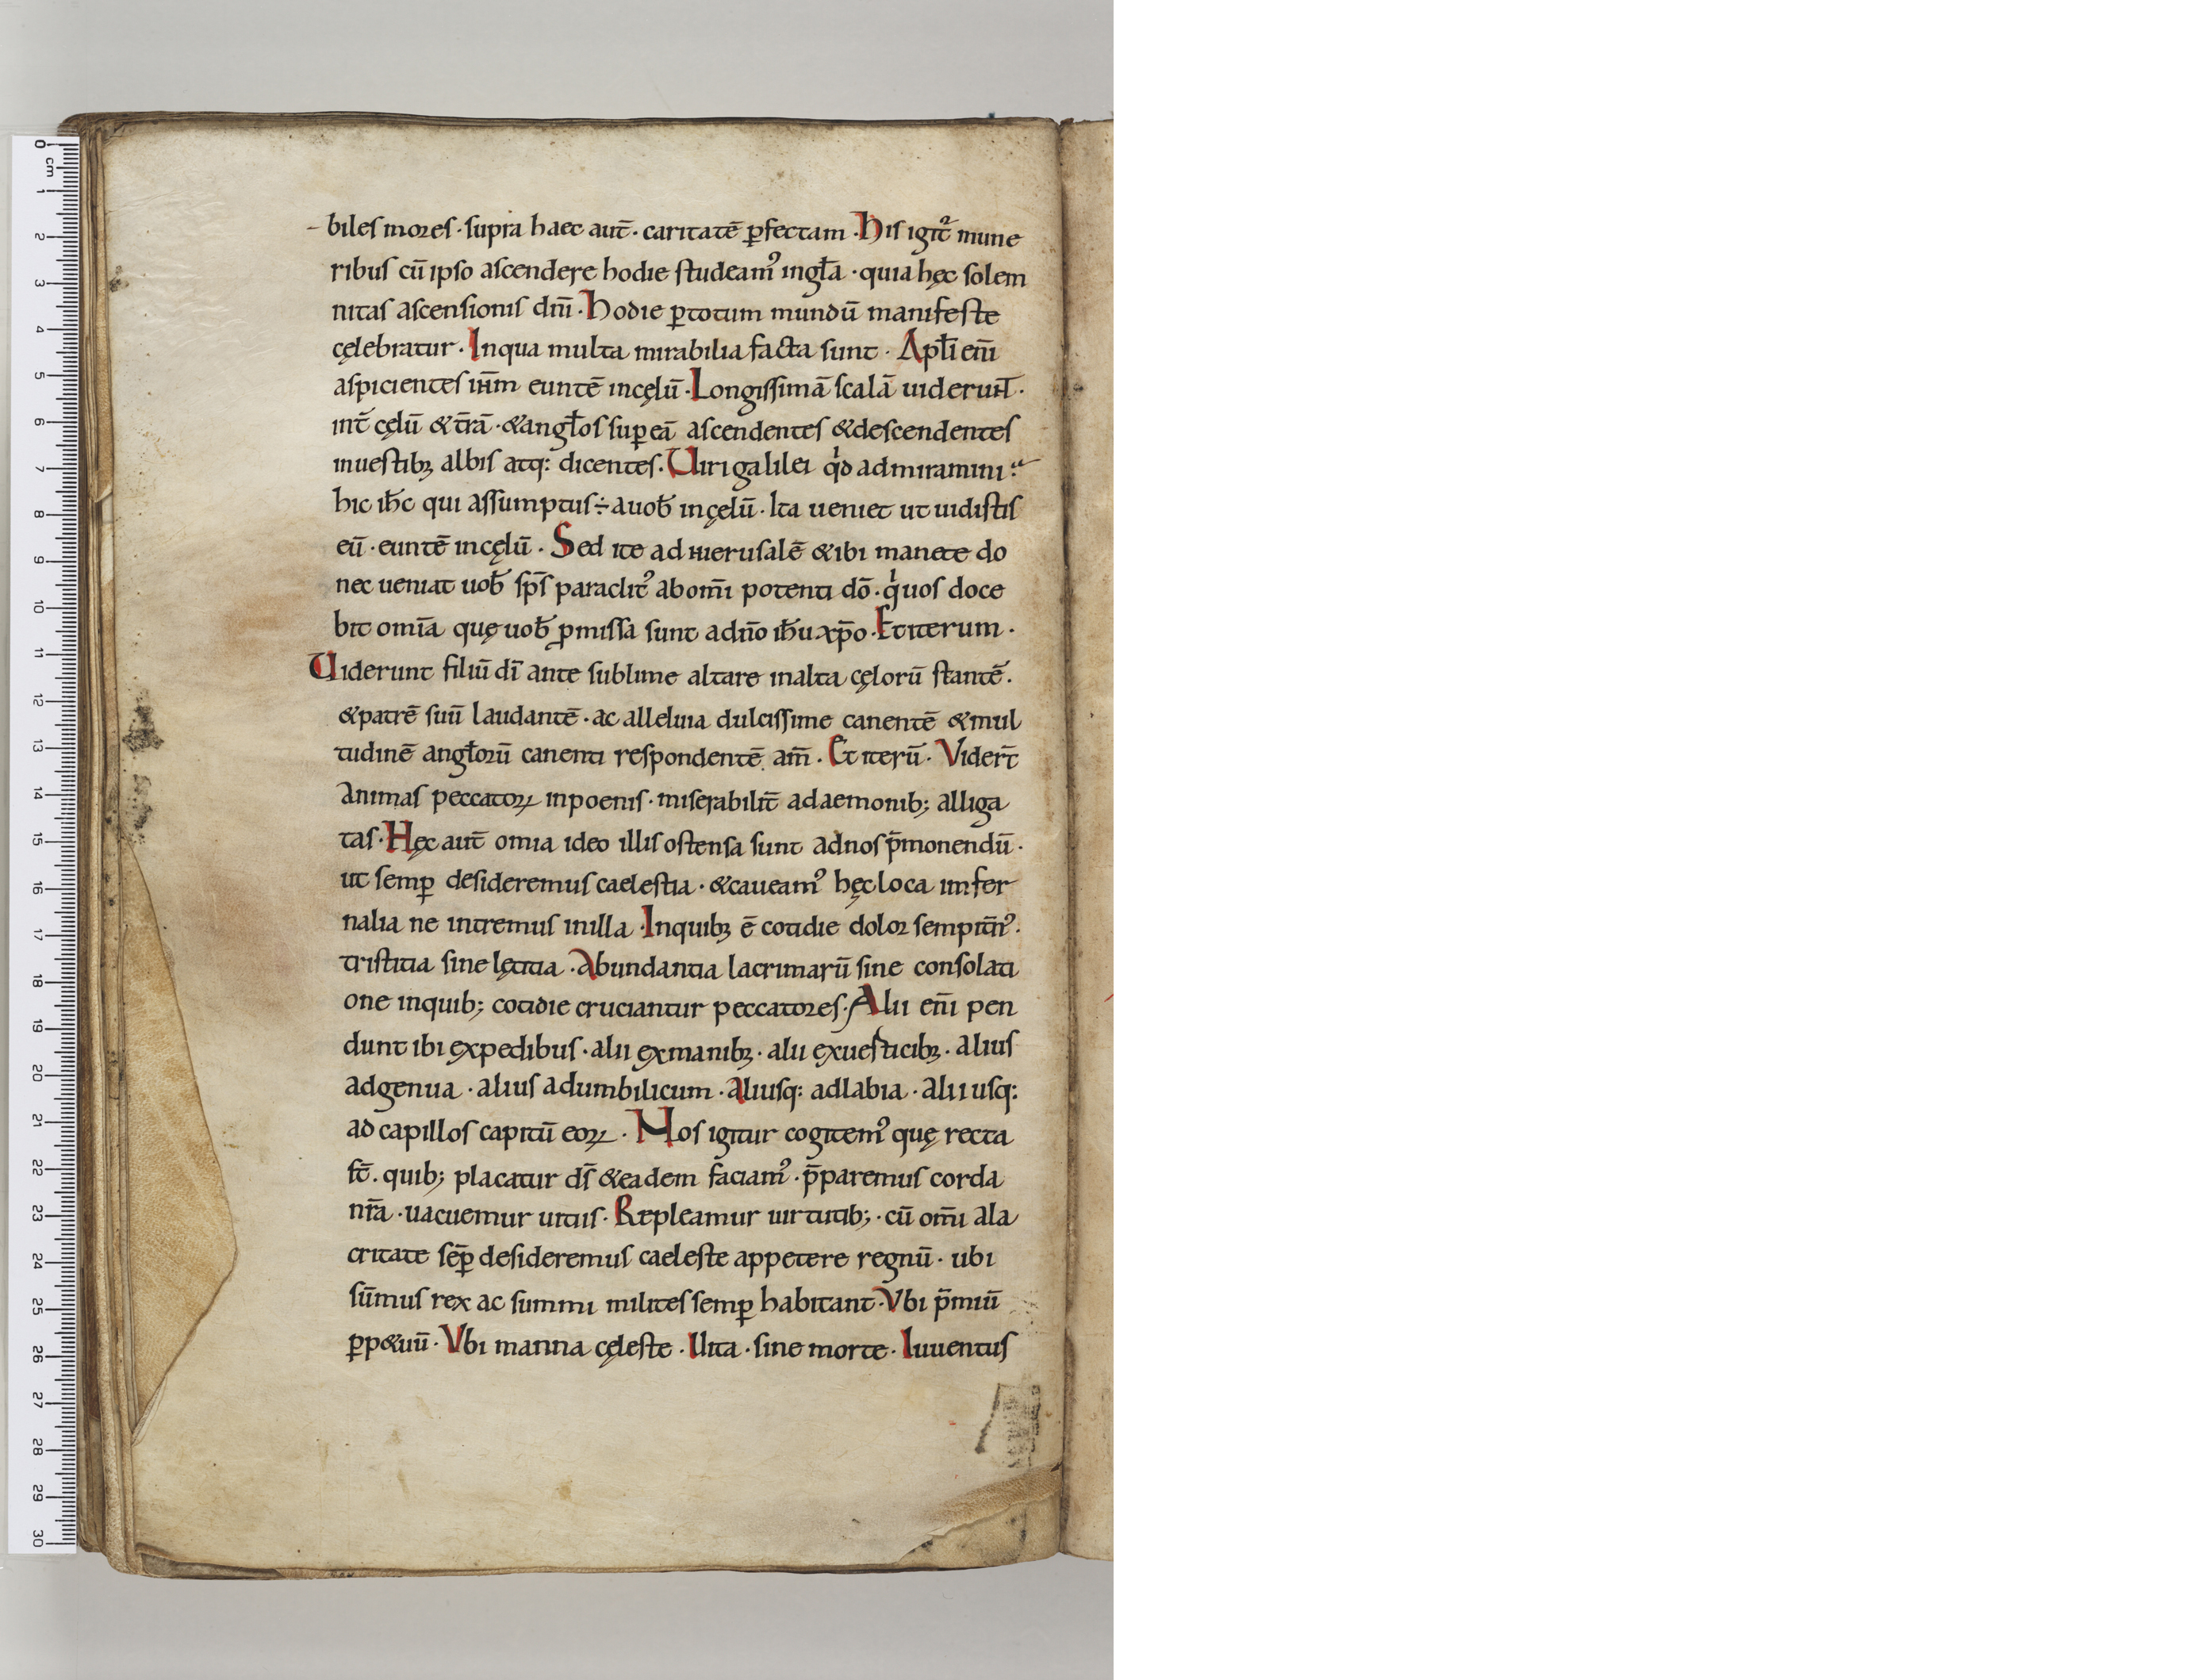 biles mores · supra haec aut̄ · caritatē ꝑfectam · His igit᷑ mune
ribus cū ipso ascendere hodie studeamꝰ in gl̄a · quia hęc solem
nitas ascensionis dn̄i · Hodie ꝑ totum mundū manifeste
cęlebratur · In qua multa mirabilia facta sunt · Apl̄i eni̅
aspicientes ih̄m euntē in cęlū · Longissimā scalā uiderunt ·
int̄ cęlū & t̄rā · & angl̄os suꝑ eā ascendentes & descendentes
in uestibꝫ albis atq: dicentes · Uiri galilei qͥd admiramini ·
hic ih̄c qui assumptus ÷ a uob̄ in cęlū · Ita ueniet ut uidistis
eū · euntē in cęlū · Sed ite ad hierusalē & ibi manete do
nec ueniat uob̄ sp̄s paraclitꝰ ab om̄i potenti dō · qͥ uos doce
bit omīa quę uob̄ ꝓmissa sunt a dn̄o ih̄u xp̄o · Et iterum ·
Uiderunt filiū dī ante sublime altare in alta cęlorū stantē ·
& patrē suū laudantē · ac alleluia dulcissime canentē & mul
tudinē angl̄orū canenti respondentē am̄ · Et iterū · Vider̄t
animas peccatoꝝ in poenis · miserabilit̄ a daemonib; alliga
tas · Hęc aut̄ omia ideo illis ostensa sunt ad nos p̄monendū ·
ut semꝑ desideremus caelestia · & caueamꝰ hęc loca infer
nalia ne intremus in illa · In quibꝫ ē cotidie dolor sempit̄nꝰ ·
tristitia sine lętitia · Abundantia lacrimarū sine consolati
one in quib; cotidie cruciantur peccatores · Alii eni̅ pen
dunt ibi ex pedibus · alii ex manibꝫ · alii ex uesticibꝫ · alius
ad genua · alius ad umbilicum · aliusq: ad labia · alii usq:
ad capillos capitū eoꝝ · Nos igitur cogitemꝰ quę recta
st̄ · quib; placatur ds̄ & eadem faciamꝰ · p̄paremus corda
nr̄a · uacuemur uitiis · Repleamur uirtutib; · cū om̄i ala
critate sēꝑ desideremus caeleste appetere regnū · ubi
sūmus rex ac summi milites semꝑ habitant · Vbi p̄miū
ꝑp&uū · Vbi manna cęleste · Uita · sine morte · Iuuentus